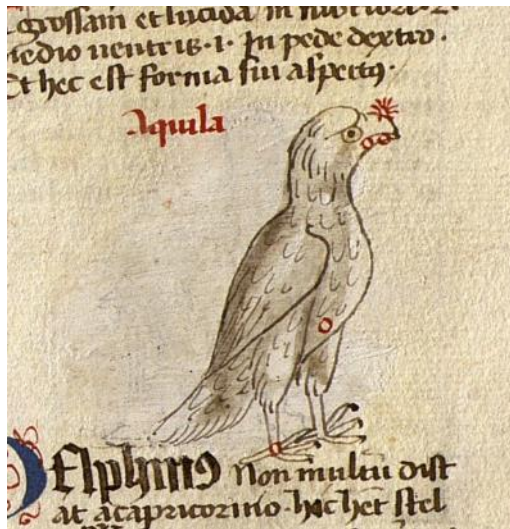 grossam et lucida in
medio uentris · i · In pede dextro ·
Et hec est forma sui aspectꝰ ·
Aquila
Delphinꝰ Non multū dist
at a capricorno · hic het stel